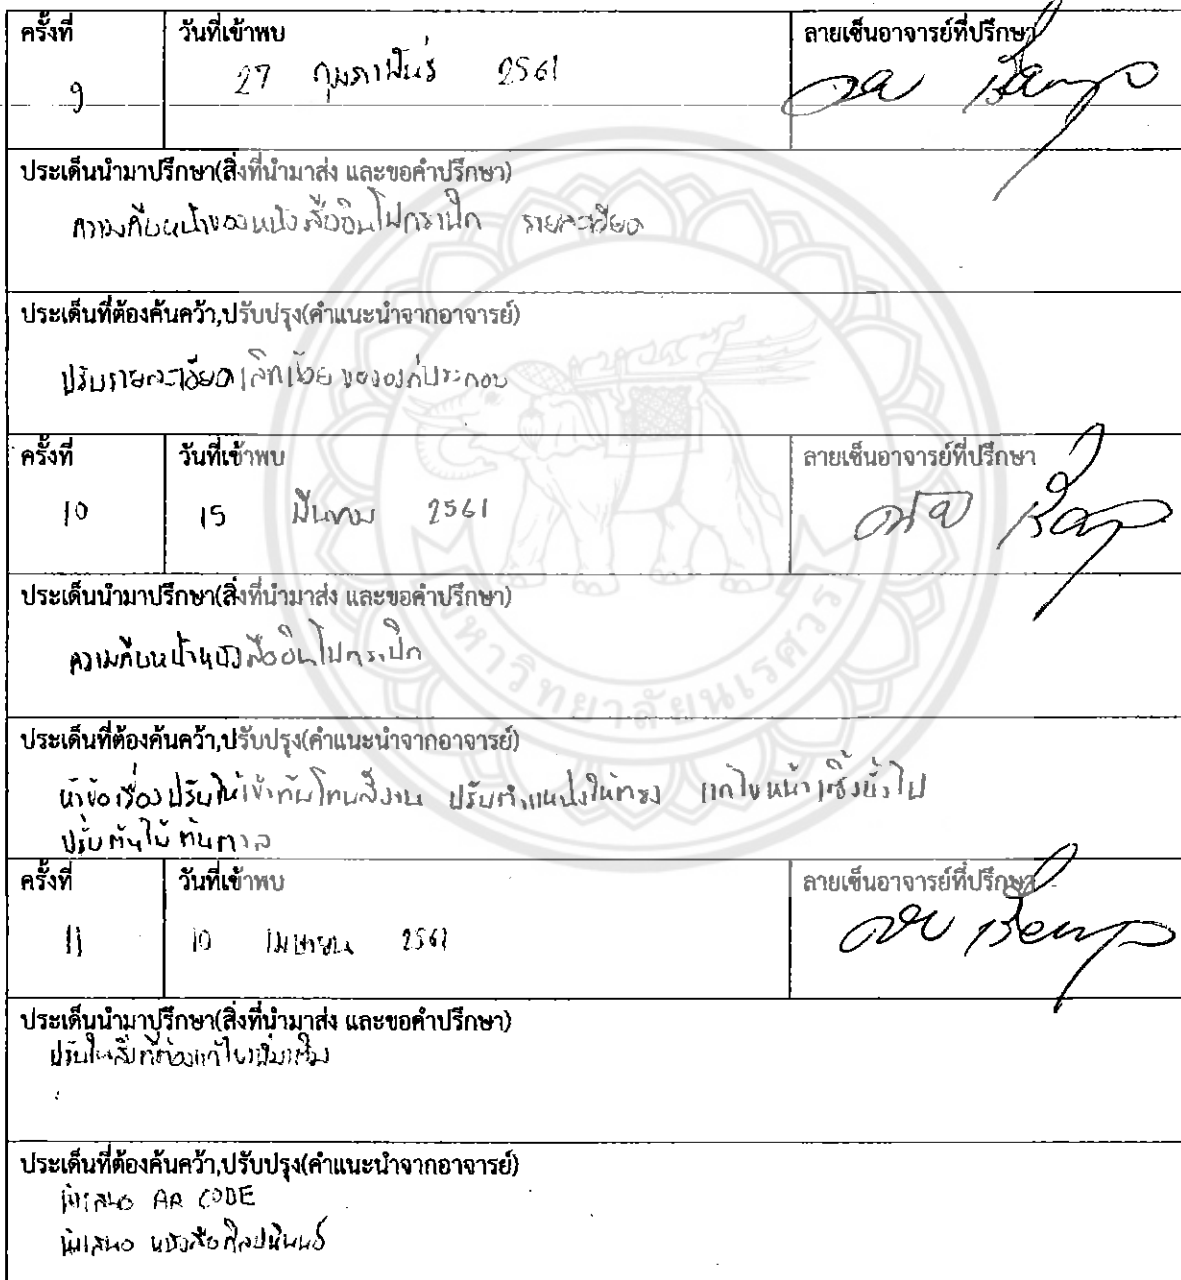 ครั้งที่ วันที่เข้าพบ ลายเซ็นอาจารย์ที่ปรึกษา
9 27 กุมภาพันธ์ 2561
ประเด็นนำมาปรึกษา(สิ่งที่นำมาส่ง และขอคำปรึกษา)
ความคืบหน้าของหนังสืออินโฟกราฟิก รายละเอียด
ประเด็นที่ต้องค้นคว้า,ปรับปรุง(คำแนะนำจากอาจารย์)
ปรับรายละเอียดเล็กน้อย ขององค์ประกอบ
ครั้งที่ วันที่เข้าพบ ลายเซ็นอาจารย์ที่ปรึกษา
10 15 มีนาคม 2561
ประเด็นนำมาปรึกษา(สิ่งที่นำมาส่ง และขอคำปรึกษา)
ความคืบหน้าหนังสืออินโฟกราฟิก
มหาวิทยาลัยนเรศวร
ประเด็นที่ต้องค้นคว้า,ปรับปรุง(คำแนะนำจากอาจารย์)
หัวข้อเรื่องปรับให้เข้ากับโทนสีงาน ปรับตำแหน่งให้ตรง แก้ไขหน้า
ปรับต้นไม้ ต้นตาล
ครั้งที่ วันที่เข้าพบ ลายเซ็นอาจารย์ที่ปรึกษา
11 10 เมษายน 2561
ประเด็นนำมาปรึกษา(สิ่งที่นำมาส่ง และขอคำปรึกษา)
ปรับในสิ่งที่ต้องแก้ไขเพิ่มเติม
ประเด็นที่ต้องค้นคว้า,ปรับปรุง(คำแนะนำจากอาจารย์)
นำเสนอ AR CODE
นำเสนอ หนังสือศิลปนิพนธ์